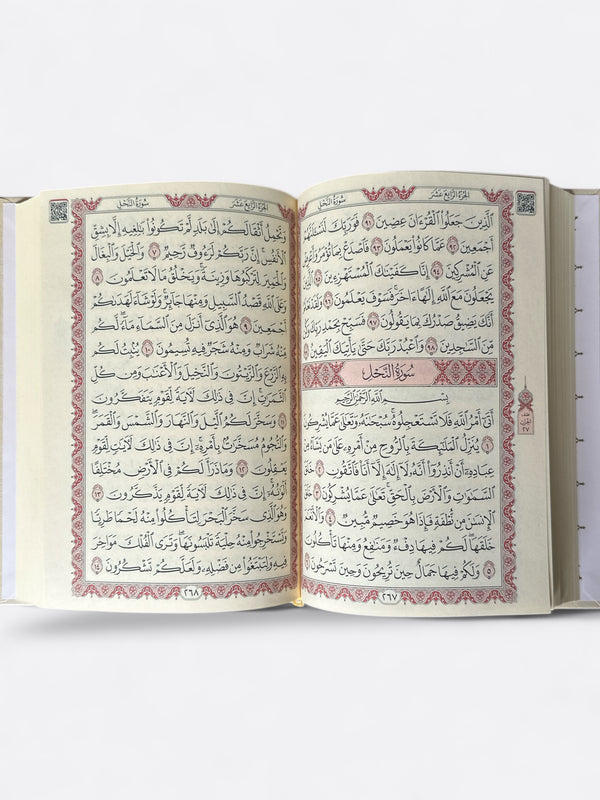 سُورَةُ النَّحْلِ
الجُزْءُ الرَّابِعَ عَشَرَ
الَّذِينَ جَعَلُوا الْقُرْءَانَ عِضِينَ ٩١ فَوَرَبِّكَ لَنَسْـَٔلَنَّهُمْ
أَجْمَعِينَ ٩٢ عَمَّا كَانُوا يَعْمَلُونَ ٩٣ فَاصْدَعْ بِمَا تُؤْمَرُ وَأَعْرِضْ
عَنِ الْمُشْرِكِينَ ٩٤ إِنَّا كَفَيْنَاكَ الْمُسْتَهْزِءِينَ ٩٥ الَّذِينَ
يَجْعَلُونَ مَعَ اللَّهِ إِلَٰهًا ءَاخَرَ فَسَوْفَ يَعْلَمُونَ ٩٦ وَلَقَدْ نَعْلَمُ
أَنَّكَ يَضِيقُ صَدْرُكَ بِمَا يَقُولُونَ ٩٧ فَسَبِّحْ بِحَمْدِ رَبِّكَ وَكُن
مِّنَ السَّاجِدِينَ ٩٨ وَاعْبُدْ رَبَّكَ حَتَّىٰ يَأْتِيَكَ الْيَقِينُ ٩٩
سُورَةُ النَّحْلِ
بِسْمِ اللَّهِ الرَّحْمَٰنِ الرَّحِيمِ
أَتَىٰ أَمْرُ اللَّهِ فَلَا تَسْتَعْجِلُوهُ سُبْحَانَهُ وَتَعَالَىٰ عَمَّا يُشْرِكُونَ
١ يُنَزِّلُ الْمَلَائِكَةَ بِالرُّوحِ مِنْ أَمْرِهِ عَلَىٰ مَن يَشَاءُ مِنْ
عِبَادِهِ أَنْ أَنذِرُوا أَنَّهُ لَا إِلَٰهَ إِلَّا أَنَا فَاتَّقُونِ ٢ خَلَقَ
السَّمَاوَاتِ وَالْأَرْضَ بِالْحَقِّ تَعَالَىٰ عَمَّا يُشْرِكُونَ ٣ خَلَقَ
الْإِنسَانَ مِن نُّطْفَةٍ فَإِذَا هُوَ خَصِيمٌ مُّبِينٌ ٤ وَالْأَنْعَامَ
خَلَقَهَا لَكُمْ فِيهَا دِفْءٌ وَمَنَافِعُ وَمِنْهَا تَأْكُلُونَ
٥ وَلَكُمْ فِيهَا جَمَالٌ حِينَ تُرِيحُونَ وَحِينَ تَسْرَحُونَ ٦
٢٦٧
نصف
الحزب
٢٧
سُورَةُ النَّحْلِ
الجُزْءُ الرَّابِعَ عَشَرَ
وَتَحْمِلُ أَثْقَالَكُمْ إِلَىٰ بَلَدٍ لَّمْ تَكُونُوا بَالِغِيهِ إِلَّا بِشِقِّ
الْأَنفُسِ إِنَّ رَبَّكُمْ لَرَءُوفٌ رَّحِيمٌ ٧ وَالْخَيْلَ وَالْبِغَالَ
وَالْحَمِيرَ لِتَرْكَبُوهَا وَزِينَةً وَيَخْلُقُ مَا لَا تَعْلَمُونَ ٨
وَعَلَى اللَّهِ قَصْدُ السَّبِيلِ وَمِنْهَا جَائِرٌ وَلَوْ شَاءَ لَهَدَاكُمْ
أَجْمَعِينَ ٩ هُوَ الَّذِي أَنزَلَ مِنَ السَّمَاءِ مَاءً لَّكُم
مِّنْهُ شَرَابٌ وَمِنْهُ شَجَرٌ فِيهِ تُسِيمُونَ ١٠ يُنبِتُ لَكُم
بِهِ الزَّرْعَ وَالزَّيْتُونَ وَالنَّخِيلَ وَالْأَعْنَابَ وَمِن كُلِّ
الثَّمَرَاتِ إِنَّ فِي ذَٰلِكَ لَآيَةً لِّقَوْمٍ يَتَفَكَّرُونَ
١١ وَسَخَّرَ لَكُمُ اللَّيْلَ وَالنَّهَارَ وَالشَّمْسَ وَالْقَمَرَ
وَالنُّجُومُ مُسَخَّرَاتٌ بِأَمْرِهِ إِنَّ فِي ذَٰلِكَ لَآيَاتٍ لِّقَوْمٍ
يَعْقِلُونَ ١٢ وَمَا ذَرَأَ لَكُمْ فِي الْأَرْضِ مُخْتَلِفًا
أَلْوَانُهُ إِنَّ فِي ذَٰلِكَ لَآيَةً لِّقَوْمٍ يَذَّكَّرُونَ ١٣
وَهُوَ الَّذِي سَخَّرَ الْبَحْرَ لِتَأْكُلُوا مِنْهُ لَحْمًا طَرِيًّا
وَتَسْتَخْرِجُوا مِنْهُ حِلْيَةً تَلْبَسُونَهَا وَتَرَى الْفُلْكَ مَوَاخِرَ
فِيهِ وَلِتَبْتَغُوا مِن فَضْلِهِ وَلَعَلَّكُمْ تَشْكُرُونَ ١٤
٢٦٨